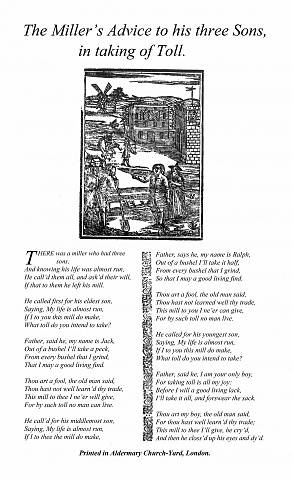 The Miller's Advice to his three Sons,
in taking of Toll.
THERE was a miller who had three
sons,
And knowing his life was almost run,
He call'd them all, and ask'd their will,
If that to them he left his mill.
He called first for his eldest son,
Saying, My life is almost run,
If I to you this mill do make,
What toll do you intend to take?
Father, said he, my name is Jack,
Out of a bushel I'll take a peck,
From every bushel that I grind,
That I may a good living find.
Thou art a fool, the old man said,
Thou hast not well learn'd thy trade,
This mill to thee I ne'er will give,
For by such toll no man can live.
He call'd for his middlemost son,
Saying, My life is almost run,
If I to thee the mill do make,
Father, says he, my name is Ralph,
Out of a bushel I'll take it half,
From every bushel that I grind,
So that I may a good living find.
Thou art a fool, the old man said,
Thou hast not learned well thy trade,
This mill to you I ne'er can give,
For by such toll no man live.
He called for his youngest son,
Saying, My life is almost run,
If I to you this mill do make,
What toll do you intend to take?
Father, said he, I am your only boy,
For taking toll is all my joy:
Before I will a good living lack,
I'll take it all, and forswear the sack.
Thou art my boy, the old man said,
For thou hast well learn'd thy trade;
This mill to thee I'll give, he cry'd,
And then he clos'd up his eyes and dy'd.
Printed in Aldermary Church-Yard, London.